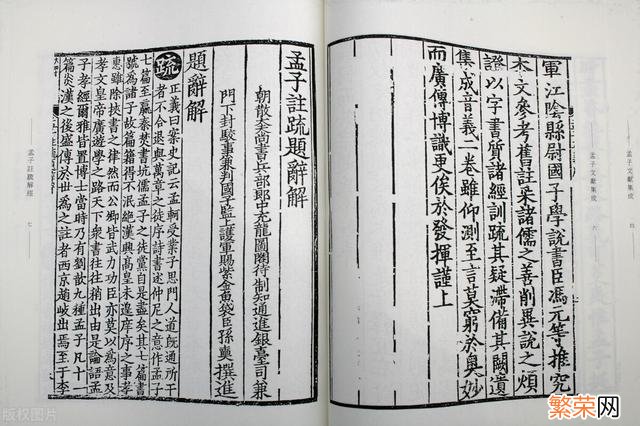 孟子文獻集成 四
軍江陰縣尉國子學說書臣馮元等推究
本文參考舊註采諸儒之善削異說之煩
證以字書質諸經訓疏其疑滯備其闕遺
集成音義二卷雖仰測至言莫窮於奧妙
而廣傳博識更俟於發揮謹上
孟子文獻集成 六
孟子註疏題辭解
朝散大夫尚書兵部郎中充龍圖閣待制知通進銀臺司兼
門下封駮事兼判國子監上護軍賜紫金魚袋臣孫奭撰進
題辭解
疏 正義曰案史記云孟軻受業子思門人道既通所干
者不合退與萬章之徒序詩書述仲尼之意作孟子
七篇至嬴秦焚書坑儒孟子之徒黨自是盡矣其七篇書
號為諸子故篇籍得不泯絕漢興高皇未遑庠序之事孝
惠雖除挾書之律然而公卿皆武力功臣亦莫以為意及
孝文皇帝廣遊學之路天下衆書往往稍出由是論語孟
子孝經爾雅皆置博士當時乃有劉歆九種孟子凡十一
篇炎漢之後盛傳於世為之註者西京趙岐出焉至于李
孟子註疏解經 七
版权图片
繁荣网